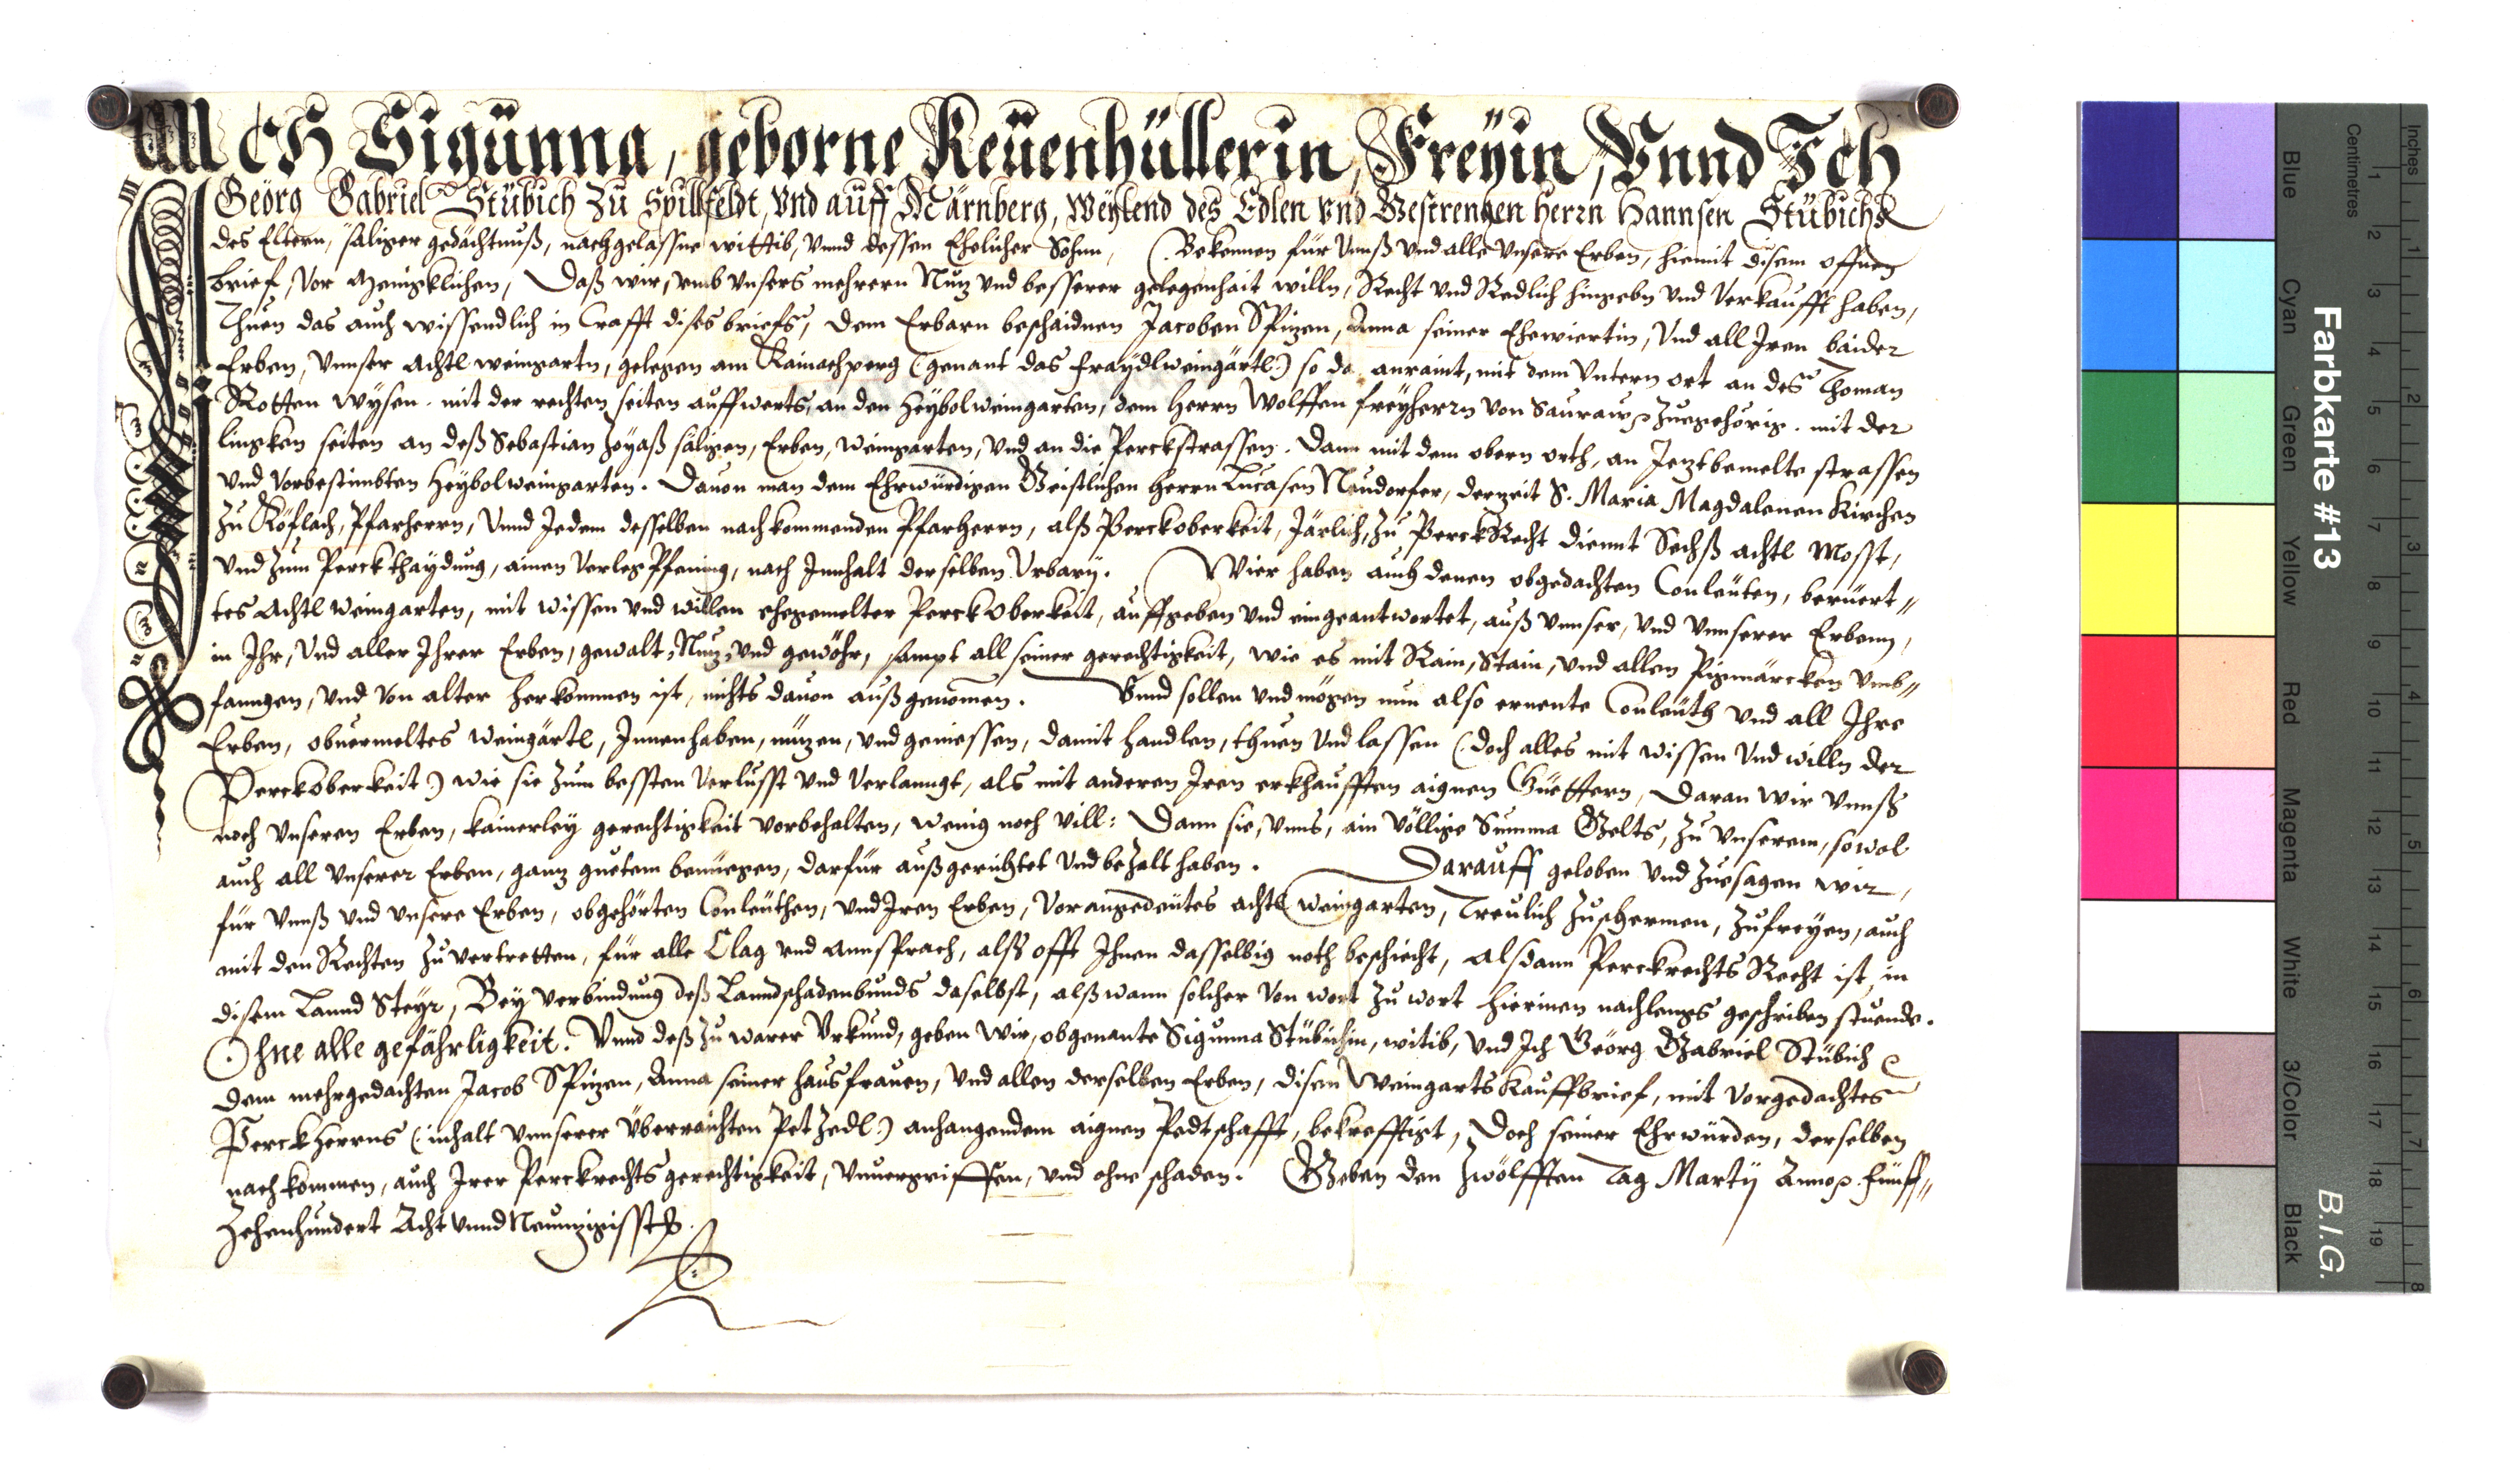 ICH Sigünna, geborne Keüenhüllerin, Freyin, Vnnd Ich
Geörg Gabriel Stübich zu Spillfeldt, vnd auff Märnberg, Weylend des Edlen vnd Gestrengen herrn Hannsen Stübichs
des Eltern, säliger gedächtnuß, nachgelassne wittib, vnnd dessen Ehelicher Sohnn, Bekennen für vnnß vnd alle vnsere Erben, hiemit disem offnen
brief, vor menigklichen, Daß wir, vmb vnsers mehrern Nuz vnd besserer gelegenhait willn, Recht vnd Redlich hingebn vnd verkaufft haben,
Thuen das auch wissendlich in Crafft dises briefs, dem Erbarn beschaidnen Jacoben Spizen, Anna seiner Ehewiertin, vnd all Iren baider
Erben, vnnser achtl weingartn, gelegen am Kainachperg (genant das fraydlweingärtl) so da anraint, mit dem vntern ort an des Thoman
Rotten wysen. mit der rechten seiten auffwerts, an den Heybolweingarten, dem Herrn Wolffen freyherrn von Sauraw zuegehörig. mit der
lingken seiten an deß Sebastian säligen, Erben, weingarten, vnd an die Perckstrassen. Dann mit dem obern orth, an Jeztbemelte strassen
vnd vorbestimbten Heybolweingarten. Dauon man dem Ehrwürdigen Geistlichen Herrn Lucasen Neudorfer, derzeit S. Maria Magdalenen Kirchen
zu Köflach, Pfarherrn, vnnd Jedem desselben nachkommenden Pfarherrn, alß Perckoberkeit, Järlich, zu PerckRecht diennt Sechß achtl Mosst,
vnd zum Perckthaydung, ainen verleg Pfening, nach Innhalt derselben Vrbary. Wier haben auch denen obgedachten Conleuten, berüert"
tes Achtl weingarten, mit wissen vnd willen ehegemelter PerckOberkeit, auffgeben vnd eingeantwortet, auß vnnser, vnd vnnserer Erbenn,
in Ihr, vnd aller Ihrer Erben, gewalt, Nuz, vnd gewöhr, sampt all seiner gerechtigkeit, wie es mit Rain, Stain, vnd allen Pigmärcken vmb"
fanngen, vnd von alter herkommen ist, nichts dauon außgenomen. Vnnd sollen vnd mögen nun also ernente Conleuth vnd all Ihre
Erben, obuermeltes weingärtl, Innenhaben, nuzen, vnd geniessen, damit handlen, thuen vnd lassen (doch alles mit wissen vnd willn der
PerckOberkeit) wie sie zum bessten verlusst vnd verlanngt, als mit anderen Iren erkhaufften aignen Güettern, Daran wir vnnß
noch vnseren Erben, kainerley gerechtigkeit vorbehalten, wenig noch vill: Dann sie, vnns, ain völlige Summa Gelts, zu vnserem, sowol
auch all vnserer Erben, ganz guetem benüegen, darfür außgerichtet vnd bezalt haben. Darauff geloben vnd zuesagen wir,
für vnnß vnd vnsere Erben, obgehörten Conleuthen, vnd Iren Erben, vorangedeutes achtl weingarten, Treulich zuschermen, zufreyen, auch
mit den Rechten zuvertretten, für alle Clag vnd Annsprach, alß offt Ihnen dasselbig noth beschiecht, alsdann Perckrechts Recht ist, in
disem Lannd Steyr, Bey verbindung deß Lanndschadenbunds daselbst, alß wann solcher von wort zu wort hierinen nachlengs geschriben stuende.
Ohne alle gefährligkeit. Vnnd deß zu warer Vrkund, geben wir, obgenante Sigunna Stübichin, witib, vnd Ich Geörg Gabriel Stübich
dem mehrgedachten Jacob Spizen, Anna seiner hausfrauen, vnd allen derselben Erben, disen Weingarts Kauffbrief, mit vorgedachtes
Perckherrns (inhalt vnnserer überraichten Petzedl) anhangendem aignen Pedtschafft, bekrefftigt, Doch seiner Ehrwürden, derselben
nachkommen, auch Irer Perckrechtsgerechtigkeit, vnuergriffen, vnd ohne schaden. Geben den zwölfften Tag Martij Anno fünff"
zehenhundert Acht vnnd Neunzigisst
Farbkarte #13
B.I.G.
Centimetres
Inches
Blue
Cyan
Green
Yellow
Red
Magenta
White
3/Color
Black
1 2 3 4 5 6 7 8 9 10 11 12 13 14 15 16 17 18 19
1 2 3 4 5 6 7 8